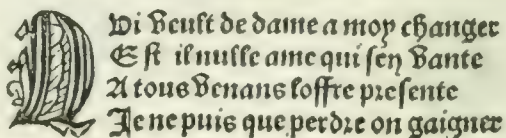 QUi veult de dame a moy changer
Est il nulle ame qui sen vante
A tous venans loffre presente
Je ne puis que perdre on gaigner